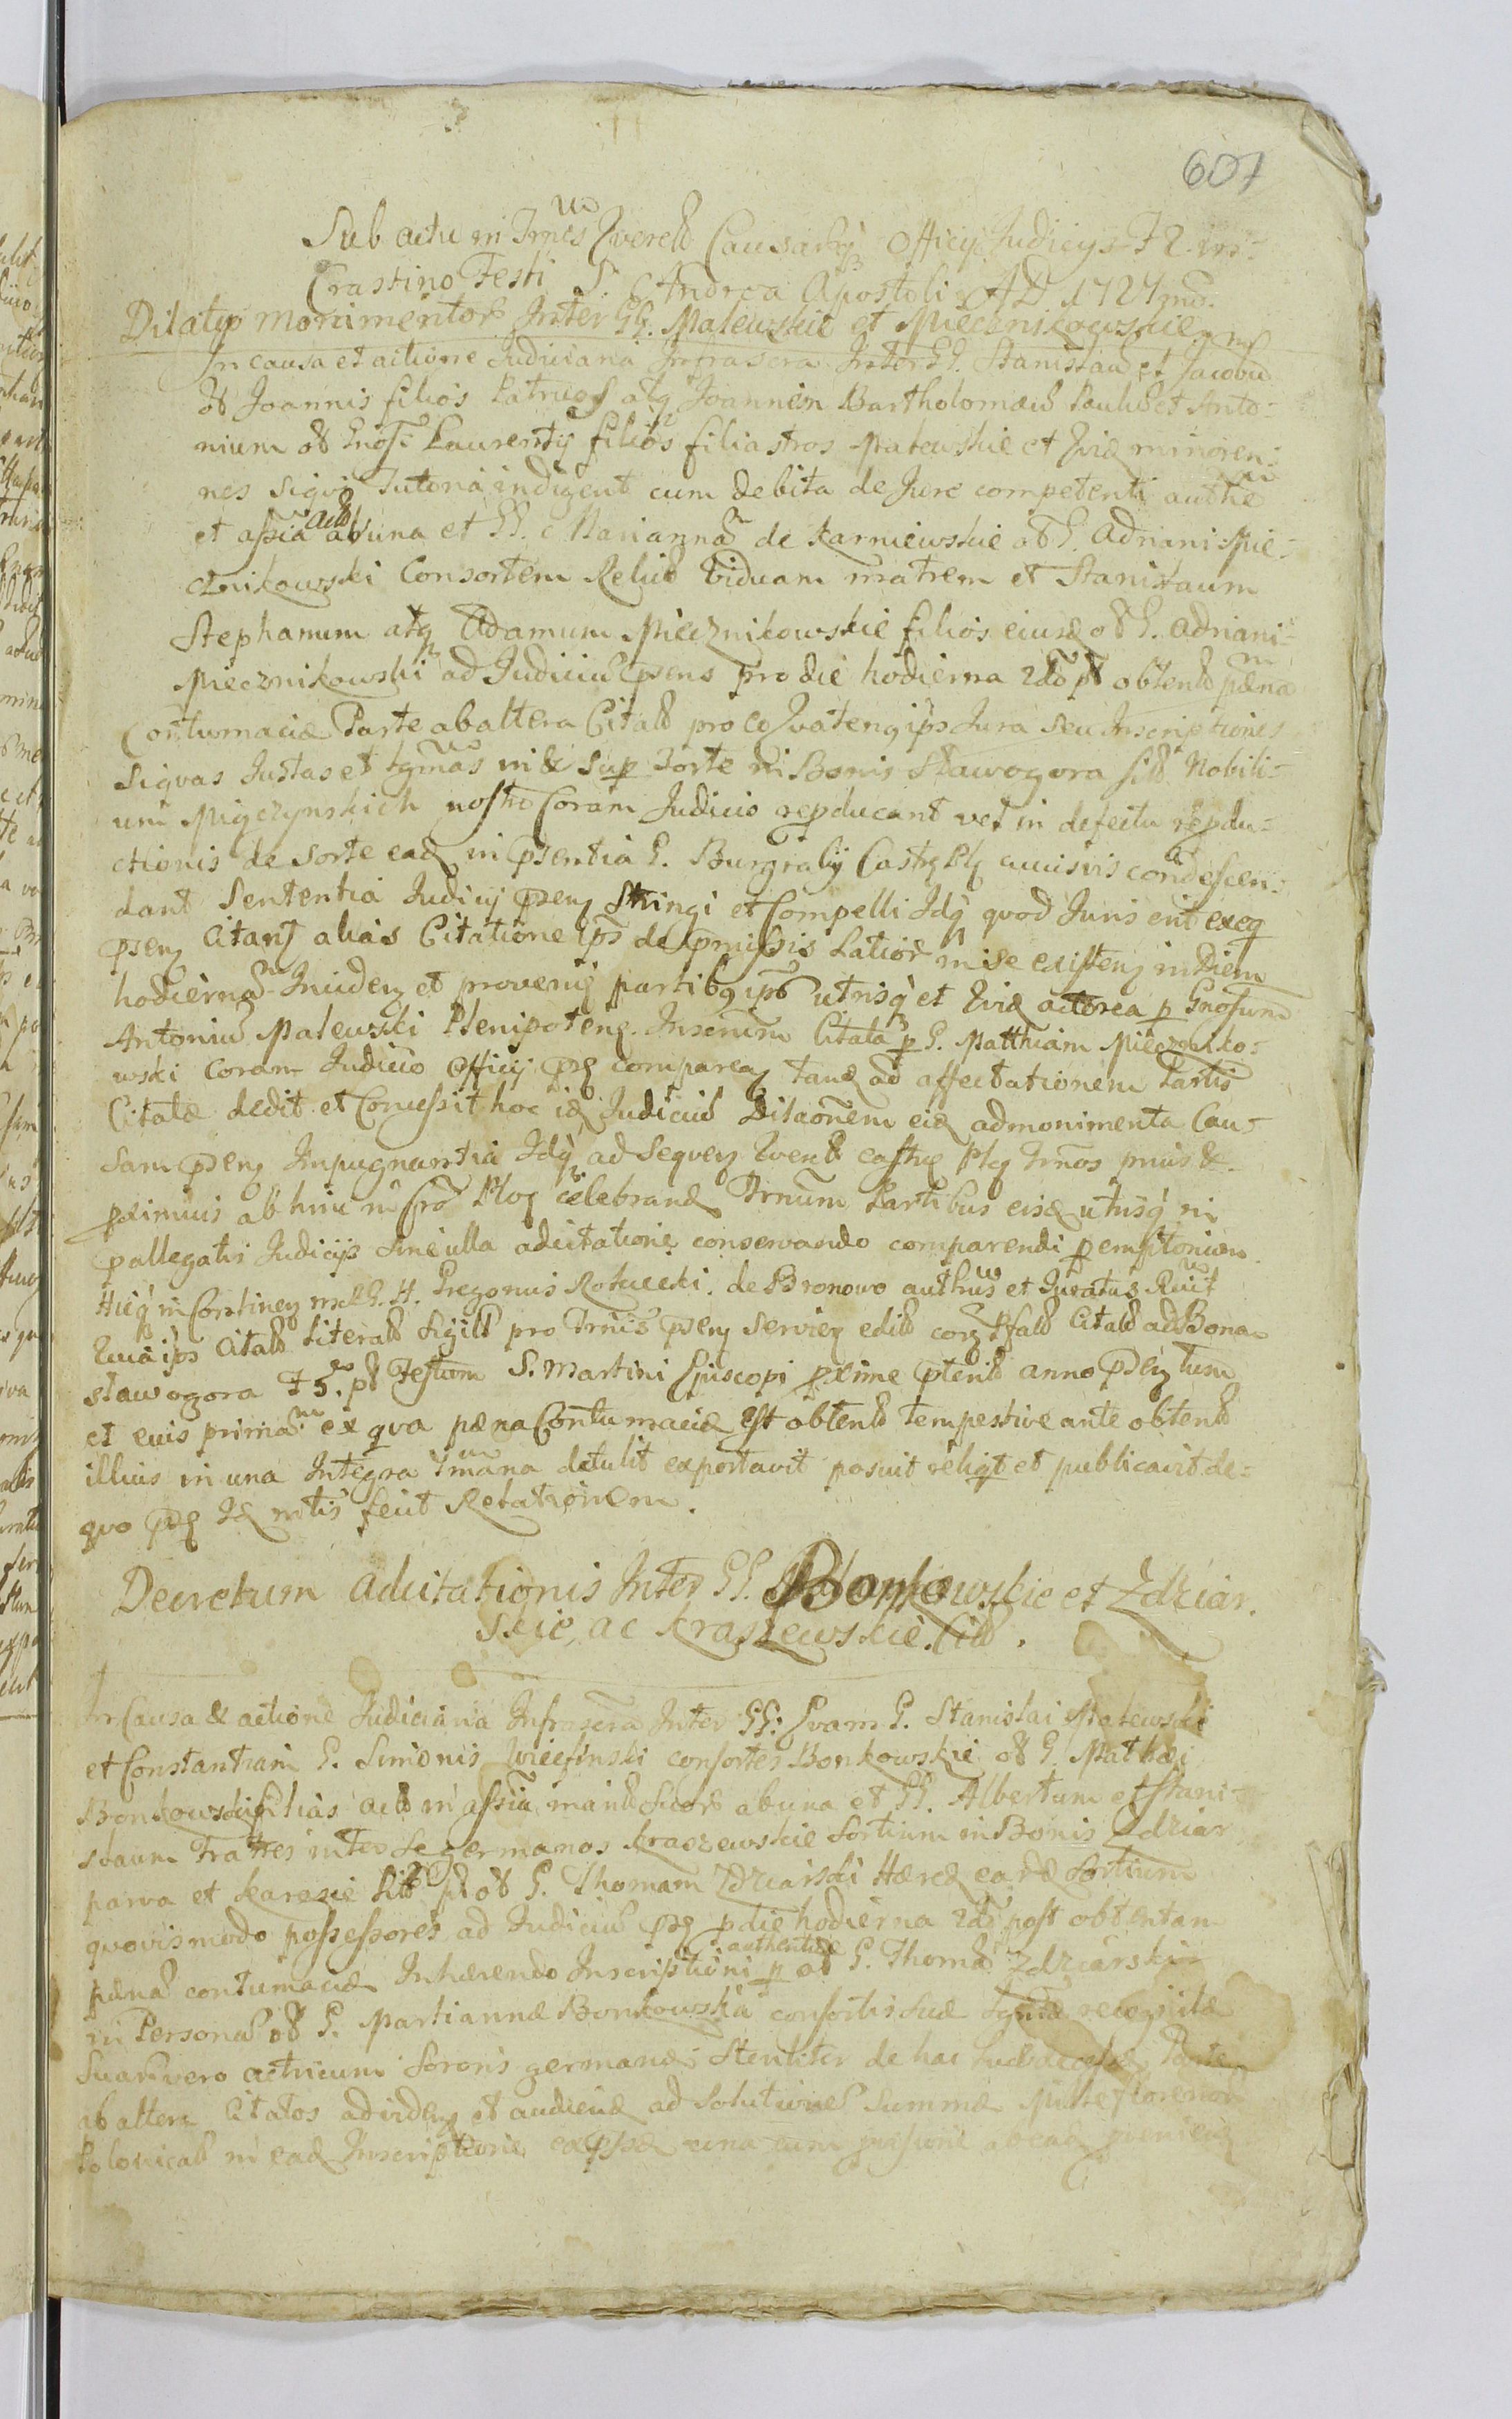 607
Sub actu in Trnis Querel Causarũq Officij Judicijs F 2 in
Crastino Festi S. Andrea Apostoli AD 1727mo.
Dilatio monimentor Inter GG. Malewskie et Miecznikowskie
In causa et actione Judiciaria Infrascra Inter GG. Stanislaũ et Jacobũ
ol Joannis filios Patruos atq Joannem Bartholomæũ Paulũ et Anto-
nium ol Gnosi Laurentij filios filiastros Malewskie et Qui minoren-
nes siqui Tutoria indigent cum debita de Jure competenti auththe
et assia actò ab una et GG. Mariannã de Karniewskie ol G. Adriani Mie-
cznikowski Consortem Relict Viduam matrem et Stanislaum
Stephanum atq Adamum Miecznikowskie filios eiusd ol G. Adriani
Miecznikowski ad Judiciũ psens pro die hodierna 2do pt obtent pænã
Contumaciæ Parte ab altera Citat pro eo Quateng ips Jura seu Inscriptiones
siqvas Justas et lgmas in & sup sorte in Bonis Sławogora sit Nobili-
um Migczynskich nostro Coram Judicio reproducant vel in defectu repdu-
ctionis de sorte ead in psentia G. Burgrabij Castr Pls cuiusvis condescen-
dant Sententia Judicij psen Stringi et Compelli Idq quod Juris erit exeq
psen Citant alias Citatione ips de pmissis Latior in se existen in Diem
hodiernã Inciden et provenien partibq ips utrisq et Quid actorea p Gnosum
Antoniũ Malewski Plenipoteng. Inscriptum Citata p G. Matthiam Miecznko-
wski Coram Judicio Officij psen comparen tand ad affectationem Partis
Citatæ dedit et Concessit hoc id Judiciũ Dilaonem eid ad monimenta Cau-
sam psen Impugnantia Idq ad sequen Quer castr Plq Trnos prius &
pximius ab hinc in Cro Ploc celebrand Trnum Partibus eisd utrisq in
pallegatis Judicijs sine ulla adcitatione conservando comparendi pemptorium
Hicq in Continen mell G. H. Gregorius Rokicki de Bronowo authus et Juratus Ruit
Quia ips Citat Literat Sigill pro Trnis psen servien edit corq pfat Citat ad Bona
sławogora F 5to pt Festum S. Martini Episcopi pxime pterit anno psen tum
et euis primam ex qva pæna Contumaciæ Est obtent tempestive ante obtent
illius in una Integra 7mana detulit exportavit posuit reliqt et publicavit de-
qvo psq Id mtis fecit Relationem.
Decretum adcitationis Inter GG. Bonkowskie et Zdziar-
skie, ac Kraszewskie Cit.
In Causa & actione Judiciaria Infrascra Inter GG: Evam G. Stanislai Malewski
et Constantiam G. Simonis Wiecfinski consortes Bonkowskie ol G. Mathæi
Bonkowski filias act in assia marit suor ab una et GG. Albertum et Stani-
slaum Fratres inter se germanos Kraszewskie Sortium in Bonis Zdziar
parva et Karasie sit pt ol G. Thomam Zdziarski Hæred eard sortium
qvovismodo possessores ad Judiciũ psq p die hodierna 2do post obtentam
pænã contumaciæ Inhærendo Inscriptioni authentice p ol G. Thomã Zdziarski
in Personã ol G. Martiannæ Bonkowskã consortis suæ lgmæ recognitæ
Suar vero actricum Sororis germanæ Steriliter de hac luce decessæ Parte
ab altera Citatos ad viden et audiend ad solutionẽ summæ Mille florenor
Polonical in ead Inscriptione expssæ una cum